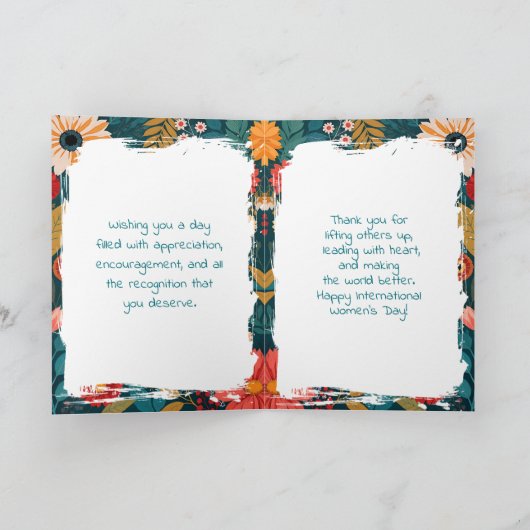 Wishing you a day
filled with appreciation,
encouragement, and all
the recognition that
you deserve.
Thank you for
lifting others up,
leading with heart,
and making
the world better.
Happy International
Women's Day!